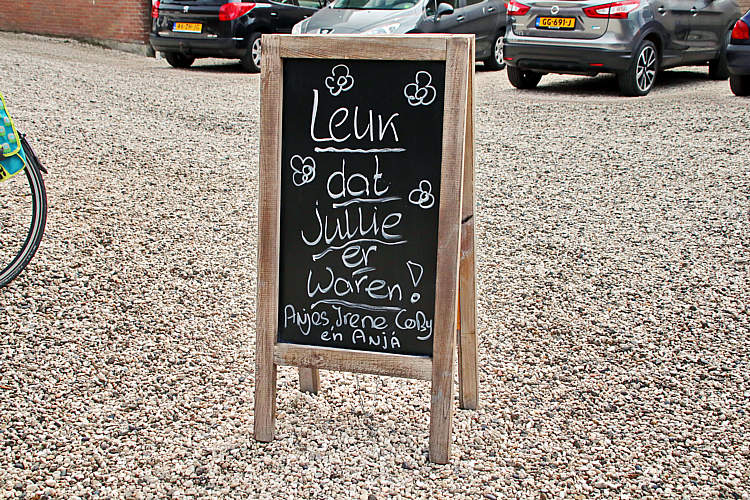 GG-691-J
Leuk
dat
jullie
er
waren!
Anjes, Irene CoBy
en Anja